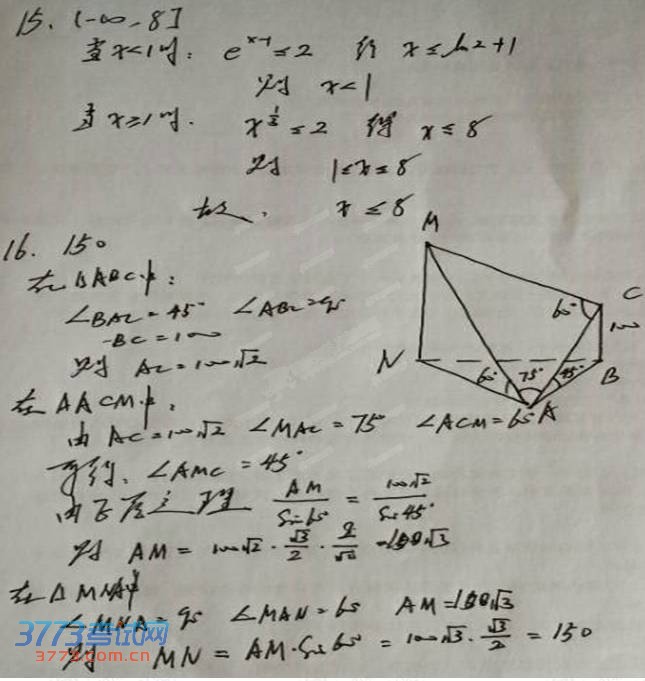 15. (-∞, 8]
当x<1时: e^{x-1} ≤ 2 得 x ≤ ln2+1
则 x<1
当x≥1时. x^{1/3} ≤ 2 得 x ≤ 8
则 1≤x≤8
故. x ≤ 8
16. 150
在△ABC中:
∠BAC=45° ∠ABC=90°
BC=100
则 AC=100√2
在△ACM中,
由 AC=100√2 ∠MAC=75° ∠ACM=60°
可得, ∠AMC=45°
由正弦定理 AM/Sin60° = 100√2/Sin45°
则 AM = 100√2 · √3/2 · 2/√2 = 100√3
在△MNA中
∠MNA=90° ∠MAN=60° AM=100√3
则 MN = AM·Sin60° = 100√3 · √3/2 = 150
M
C
60°
100
N
60°
75°
45°
B
A
3773考试网
3773.com.cn